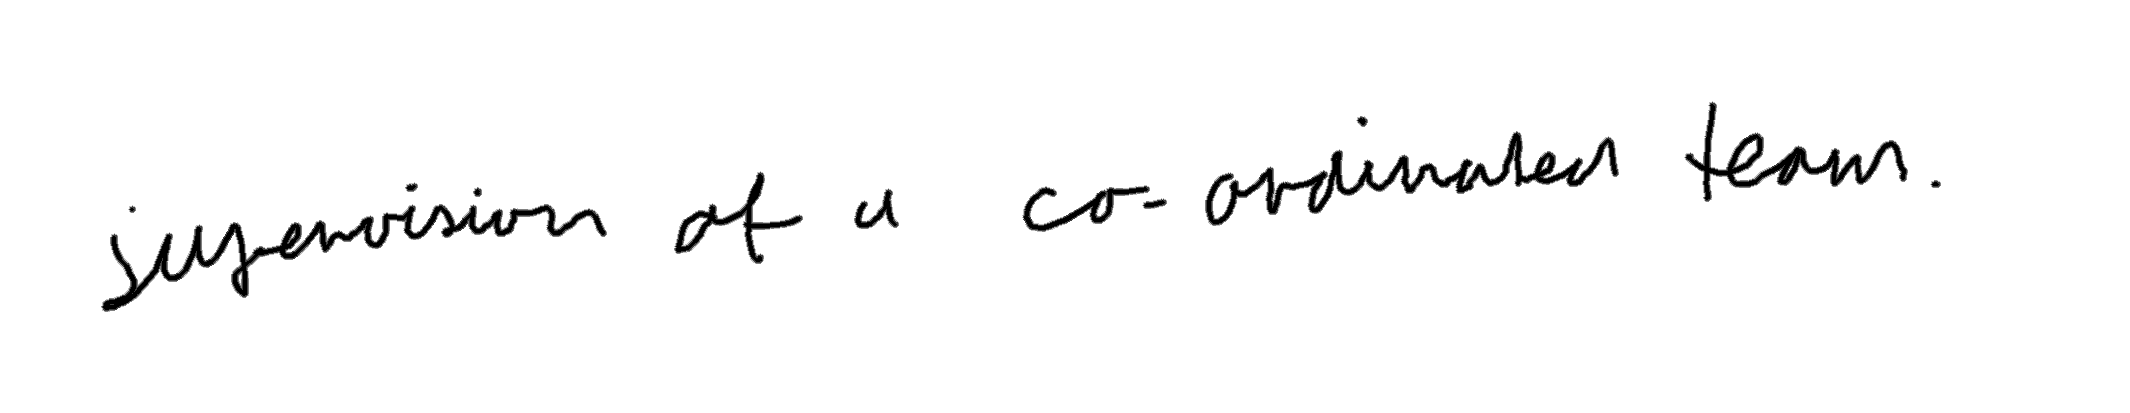 supervision of a co-ordinated team.